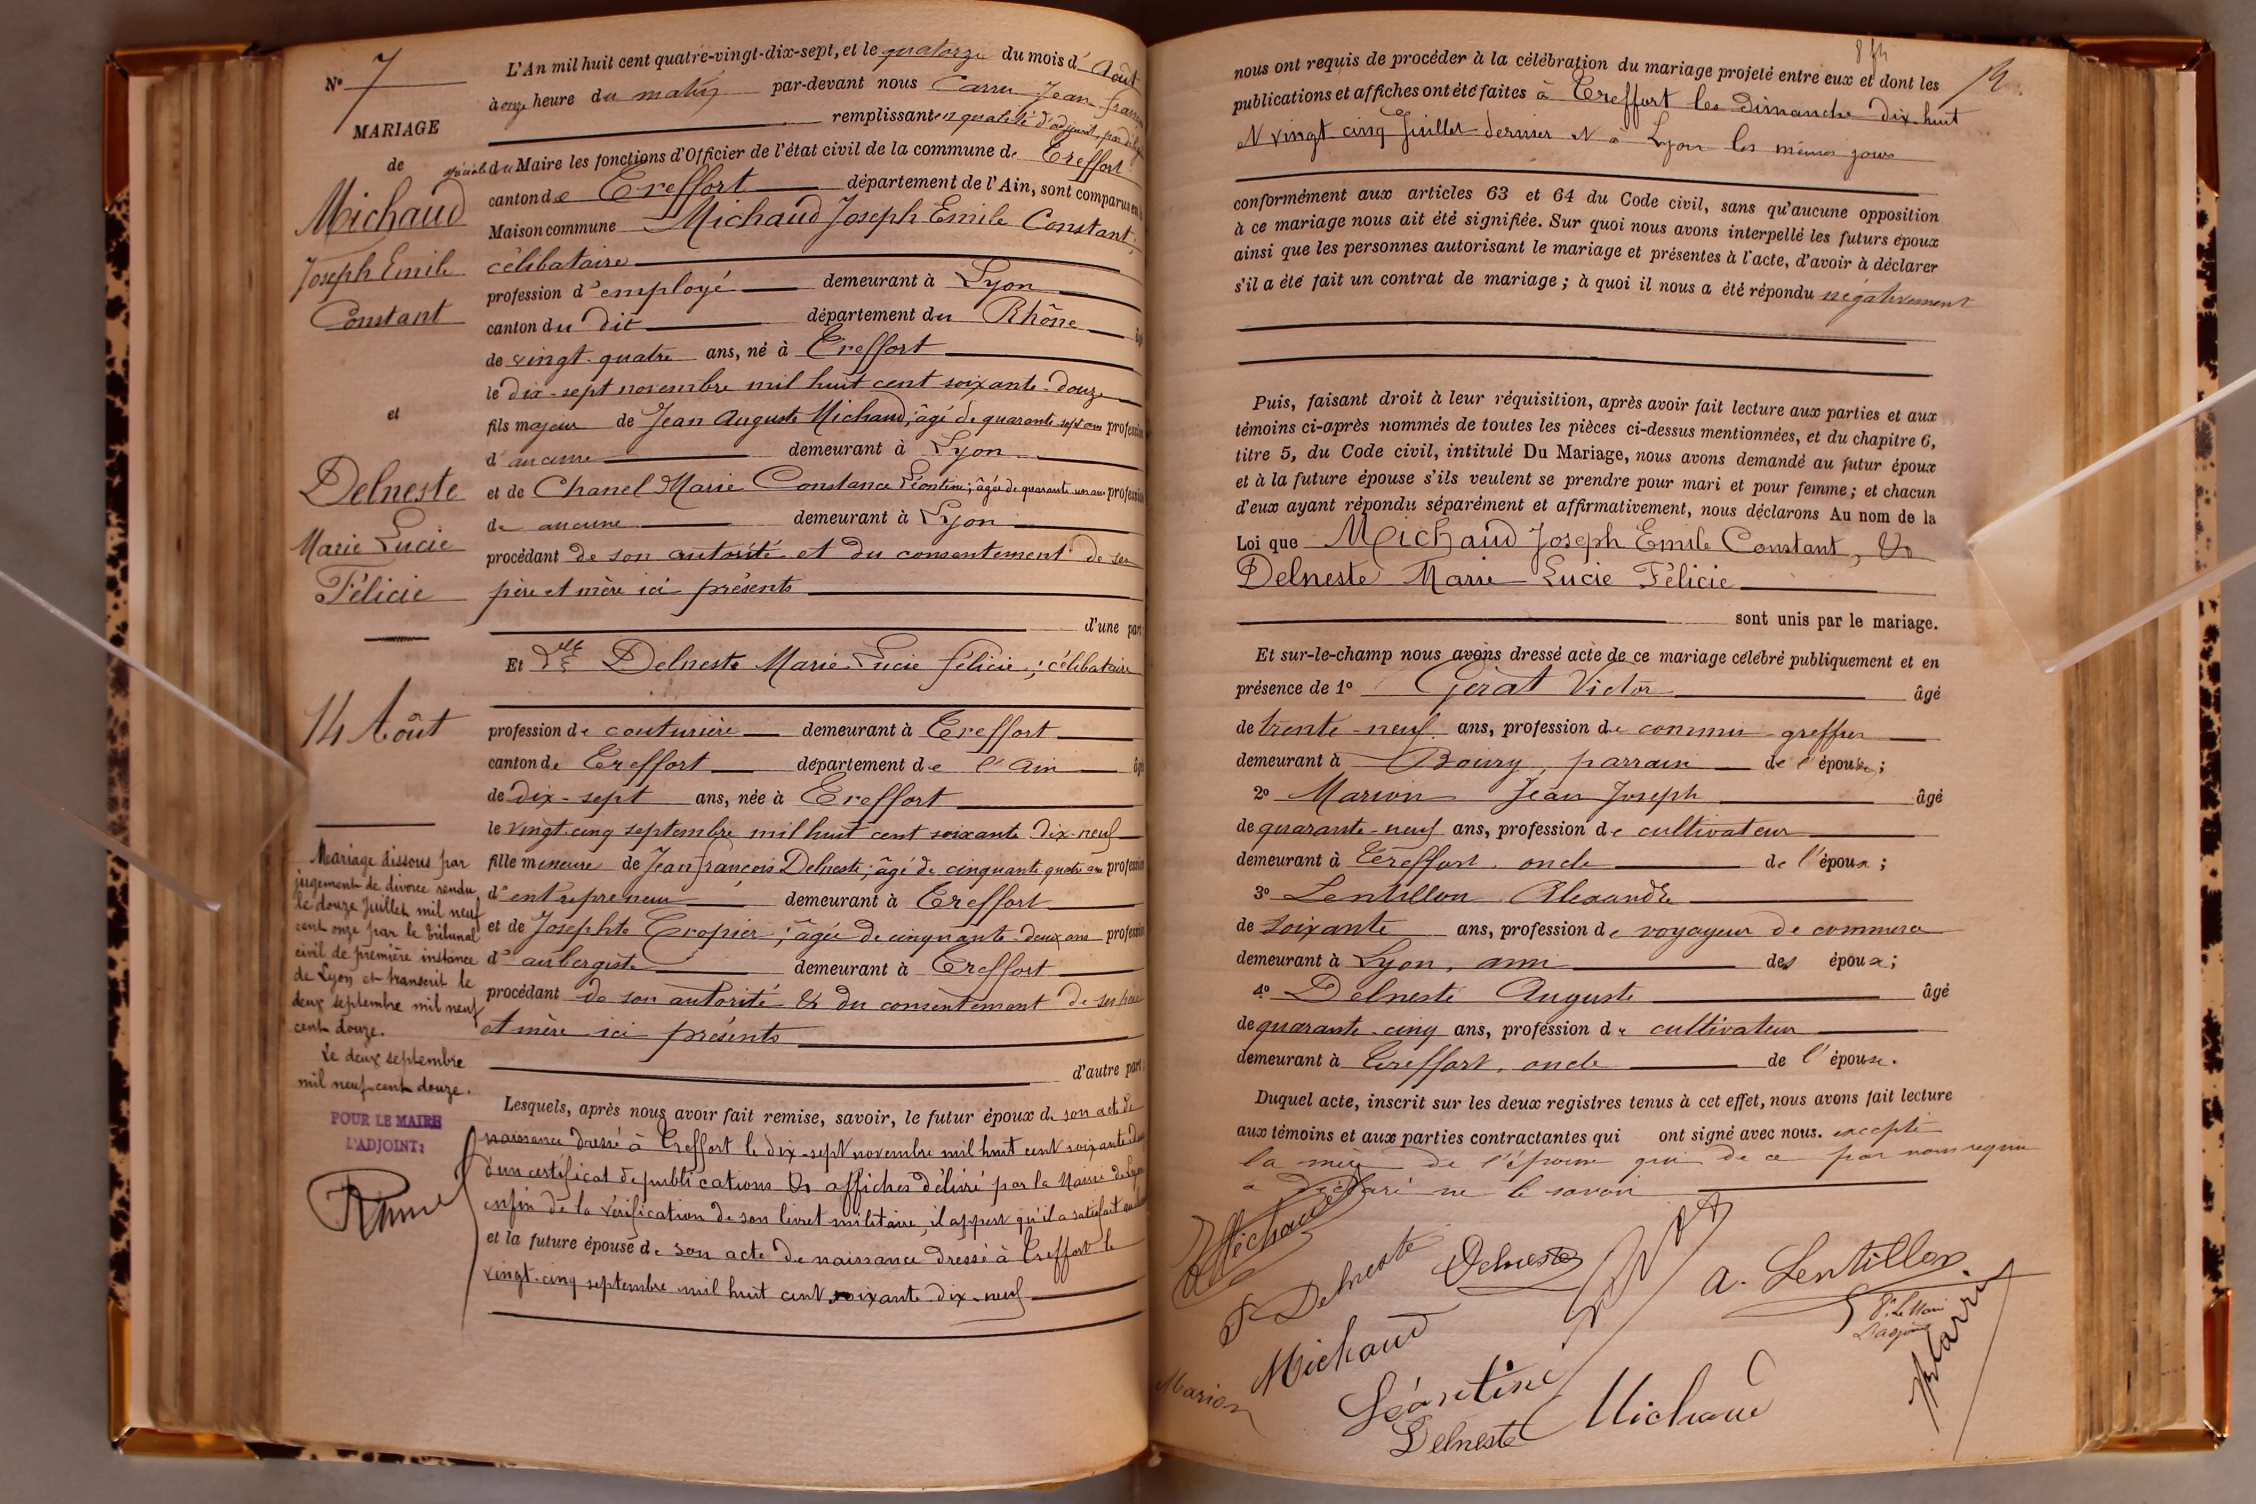 N° 7
MARIAGE
de
Michaud
Joseph Emile
Constant
et
Delneste
Marie Lucie
Félicie
14 Août
Mariage dissous par
jugement de divorce rendu
le douze Juillet mil neuf
cent onze par le tribunal
civil de première instance
de Lyon et transcrit le
deux septembre mil neuf
cent douze.
Le deux septembre
mil neuf cent douze.
POUR LE MAIRE
L'ADJOINT:
L'An mil huit cent quatre-vingt-dix-sept, et le quatorze du mois d' Août
à onze heure du matin par-devant nous Carru Jean
remplissant en qualité d'adjoint, par délég
spéciale du Maire les fonctions d'Officier de l'état civil de la commune de Treffort
canton de Treffort département de l'Ain, sont comparus en la
Maison commune Michaud Joseph Emile Constant,
célibataire
profession d'employé demeurant à Lyon
canton du dit département du Rhône âgé
de vingt-quatre ans, né à Treffort
le dix-sept novembre mil huit cent soixante-douze
fils majeur de Jean Auguste Michaud, âgé de quarante sept ans profession
d'aucune demeurant à Lyon
et de Chanel Marie Constance Léontine; âgée de quarante un ans profession
de aucune demeurant à Lyon
procédant de son autorité et du consentement de ses
père et mère ici présents
d'une part
Et Dlle Delneste Marie Lucie félicie; célibataire
profession de couturière demeurant à Treffort
canton de Treffort département de l'Ain âgé
de dix-sept ans, née à Treffort
le vingt-cinq septembre mil huit cent soixante dix-neuf
fille mineure de Jean françois Delneste; âgé de cinquante quatre ans profession
d'entrepreneur demeurant à Treffort
et de Josephte Tropier; âgée de cinquante-deux ans profession
d'aubergiste demeurant à Treffort
procédant de son autorité & du consentement de ses père
et mère ici présents
d'autre part.
Lesquels, après nous avoir fait remise, savoir, le futur époux de son acte de
naissance dressé à Treffort le dix-sept novembre mil huit cent soixante douze
d'un certificat de publications & affiches délivré par la Mairie de Lyon
enfin de la vérification de son livret militaire, il appert qu'il a satisfait
et la future épouse de son acte de naissance dressé à Treffort le
vingt-cinq septembre mil huit cent soixante dix-neuf
nous ont requis de procéder à la célébration du mariage projeté entre eux et dont les
publications et affiches ont été faites à Treffort les dimanche dix-huit
et vingt cinq Juillet dernier et à Lyon les mêmes jours
conformément aux articles 63 et 64 du Code civil, sans qu'aucune opposition
à ce mariage nous ait été signifiée. Sur quoi nous avons interpellé les futurs époux
ainsi que les personnes autorisant le mariage et présentes à l'acte, d'avoir à déclarer
s'il a été fait un contrat de mariage; à quoi il nous a été répondu négativement
Puis, faisant droit à leur réquisition, après avoir fait lecture aux parties et aux
témoins ci-après nommés de toutes les pièces ci-dessus mentionnées, et du chapitre 6,
titre 5, du Code civil, intitulé Du Mariage, nous avons demandé au futur époux
et à la future épouse s'ils veulent se prendre pour mari et pour femme; et chacun
d'eux ayant répondu séparément et affirmativement, nous déclarons Au nom de la
Loi que Michaud Joseph Emile Constant, &
Delneste Marie Lucie Félicie
sont unis par le mariage.
Et sur-le-champ nous avons dressé acte de ce mariage célébré publiquement et en
présence de 1° Gerat Victor âgé
de trente-neuf ans, profession de commis-greffier
demeurant à parrain de l'épouse;
2° Marion Jean Joseph âgé
de quarante-neuf ans, profession de cultivateur
demeurant à Treffort, oncle de l'époux;
3° Lentillon Alexandre
de soixante ans, profession de voyageur de commerce
demeurant à Lyon, ami des époux;
4° Delneste Auguste âgé
de quarante-cinq ans, profession de cultivateur
demeurant à Treffort, oncle de l'épouse.
Duquel acte, inscrit sur les deux registres tenus à cet effet, nous avons fait lecture
aux témoins et aux parties contractantes qui ont signé avec nous. excepté
la mère de l'épouse qui de ce par nous requise
a déclaré ne le savoir
Michaud
Delneste
Delneste
A. Lentillon
Pr Le Maire
L'adjoint
Michaud
Marion
Léontine Michaud
Delneste